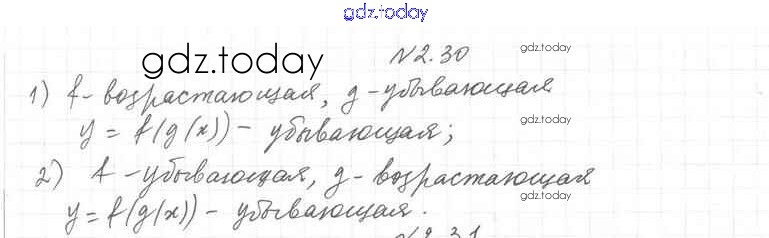 gdz.today
№2.30
gdz.today
gdz.today
1) f - возрастающая, g - убывающая
y = f(g(x)) - убывающая;
gdz.today
2) f - убывающая, g - возрастающая
y = f(g(x)) - убывающая.
gdz.today
№2.31